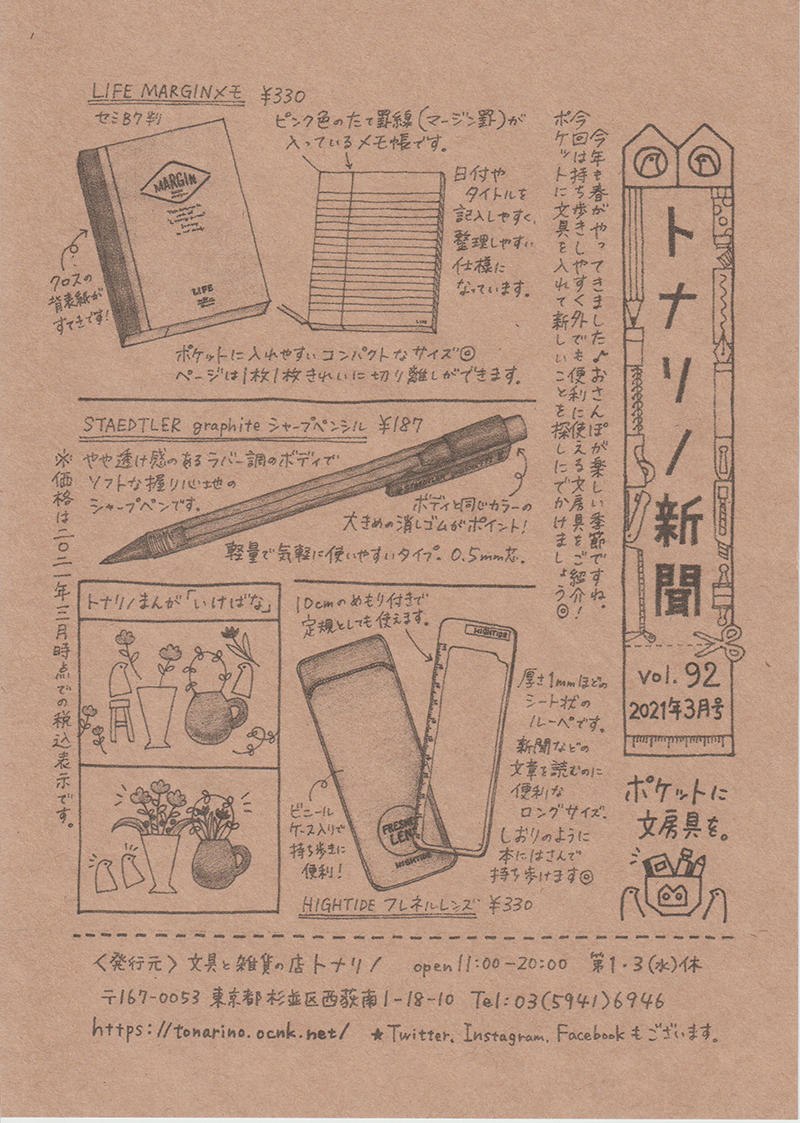 トナリノ新聞
vol. 92
2021年3月号
ポケットに
文房具を。
今年も春がやってきました♪おさんぽが楽しい季節ですね。
今回は持ち歩きしやすく外でも便利に使える文房具をご紹介！
ポケットに文具を入れて新しいことを探しにでかけましょう◎
LIFE MARGINメモ ¥330
セミB7判
ピンク色のたて罫線(マージン罫)が
入っているメモ帳です。
MARGIN
LIFE
日付や
タイトルを
記入しやすく、
整理しやすい
仕様に
なっています。
クロスの
背表紙が
すてきです！
ポケットに入れやすいコンパクトなサイズ◎
ページは1枚1枚きれいに切り離しができます。
STAEDTLER graphite シャープペンシル ¥187
やや透け感のあるラバー調のボディで
ソフトな握り心地の
シャープペンです。
ボディと同じカラーの
大きめの消しゴムがポイント！
軽量で気軽に使いやすいタイプ。0.5mm芯。
トナリノまんが「いけばな」
10cmのめもり付きで
定規としても使えます。
HIGHTIDE
厚さ1mmほどの
シート状の
ルーペです。
新聞などの
文章を読むのに
便利な
ロングサイズ。
しおりのように
本にはさんで
持ち歩けます◎
ビニール
ケース入りで
持ち歩きに
便利！
FRESNEL
LENS
HIGHTIDE
HIGHTIDE フレネルレンズ ¥330
※価格は二〇二一年三月時点での税込表示です。
〈発行元〉文具と雑貨の店トナリノ open 11:00-20:00 第1・3(水)休
〒167-0053 東京都杉並区西荻南1-18-10 Tel:03(5941)6946
https://tonarino.ocnk.net/ ★Twitter, Instagram, Facebookもございます。